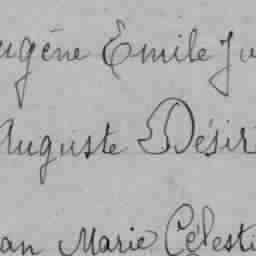 ugène Emile Ju
Auguste Désir
an Marie Célesti